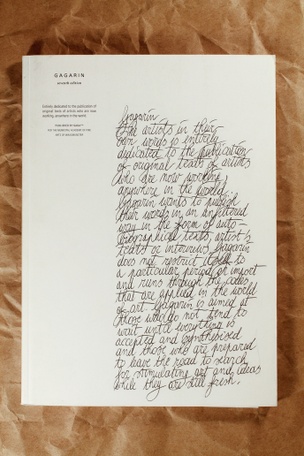 GAGARIN
Gagarin
the artists in their
own words is entirely
dedicated to the publication
of original texts of artists
who are now working,
anywhere in the world.
Gagarin wants to publish
their words in an unfiltered
way in the form of auto-
biographical texts, artist's
texts or interviews. Gagarin
does not restrict itself to
a particular period or import
and runs through the codes
that are applied in the world
of art. Gagarin is aimed at
those who do not tend to
wait until everything is
accepted and synthesised
and those who are prepared
to leave the road to search
for stimulating art and ideas
while they are still fresh.